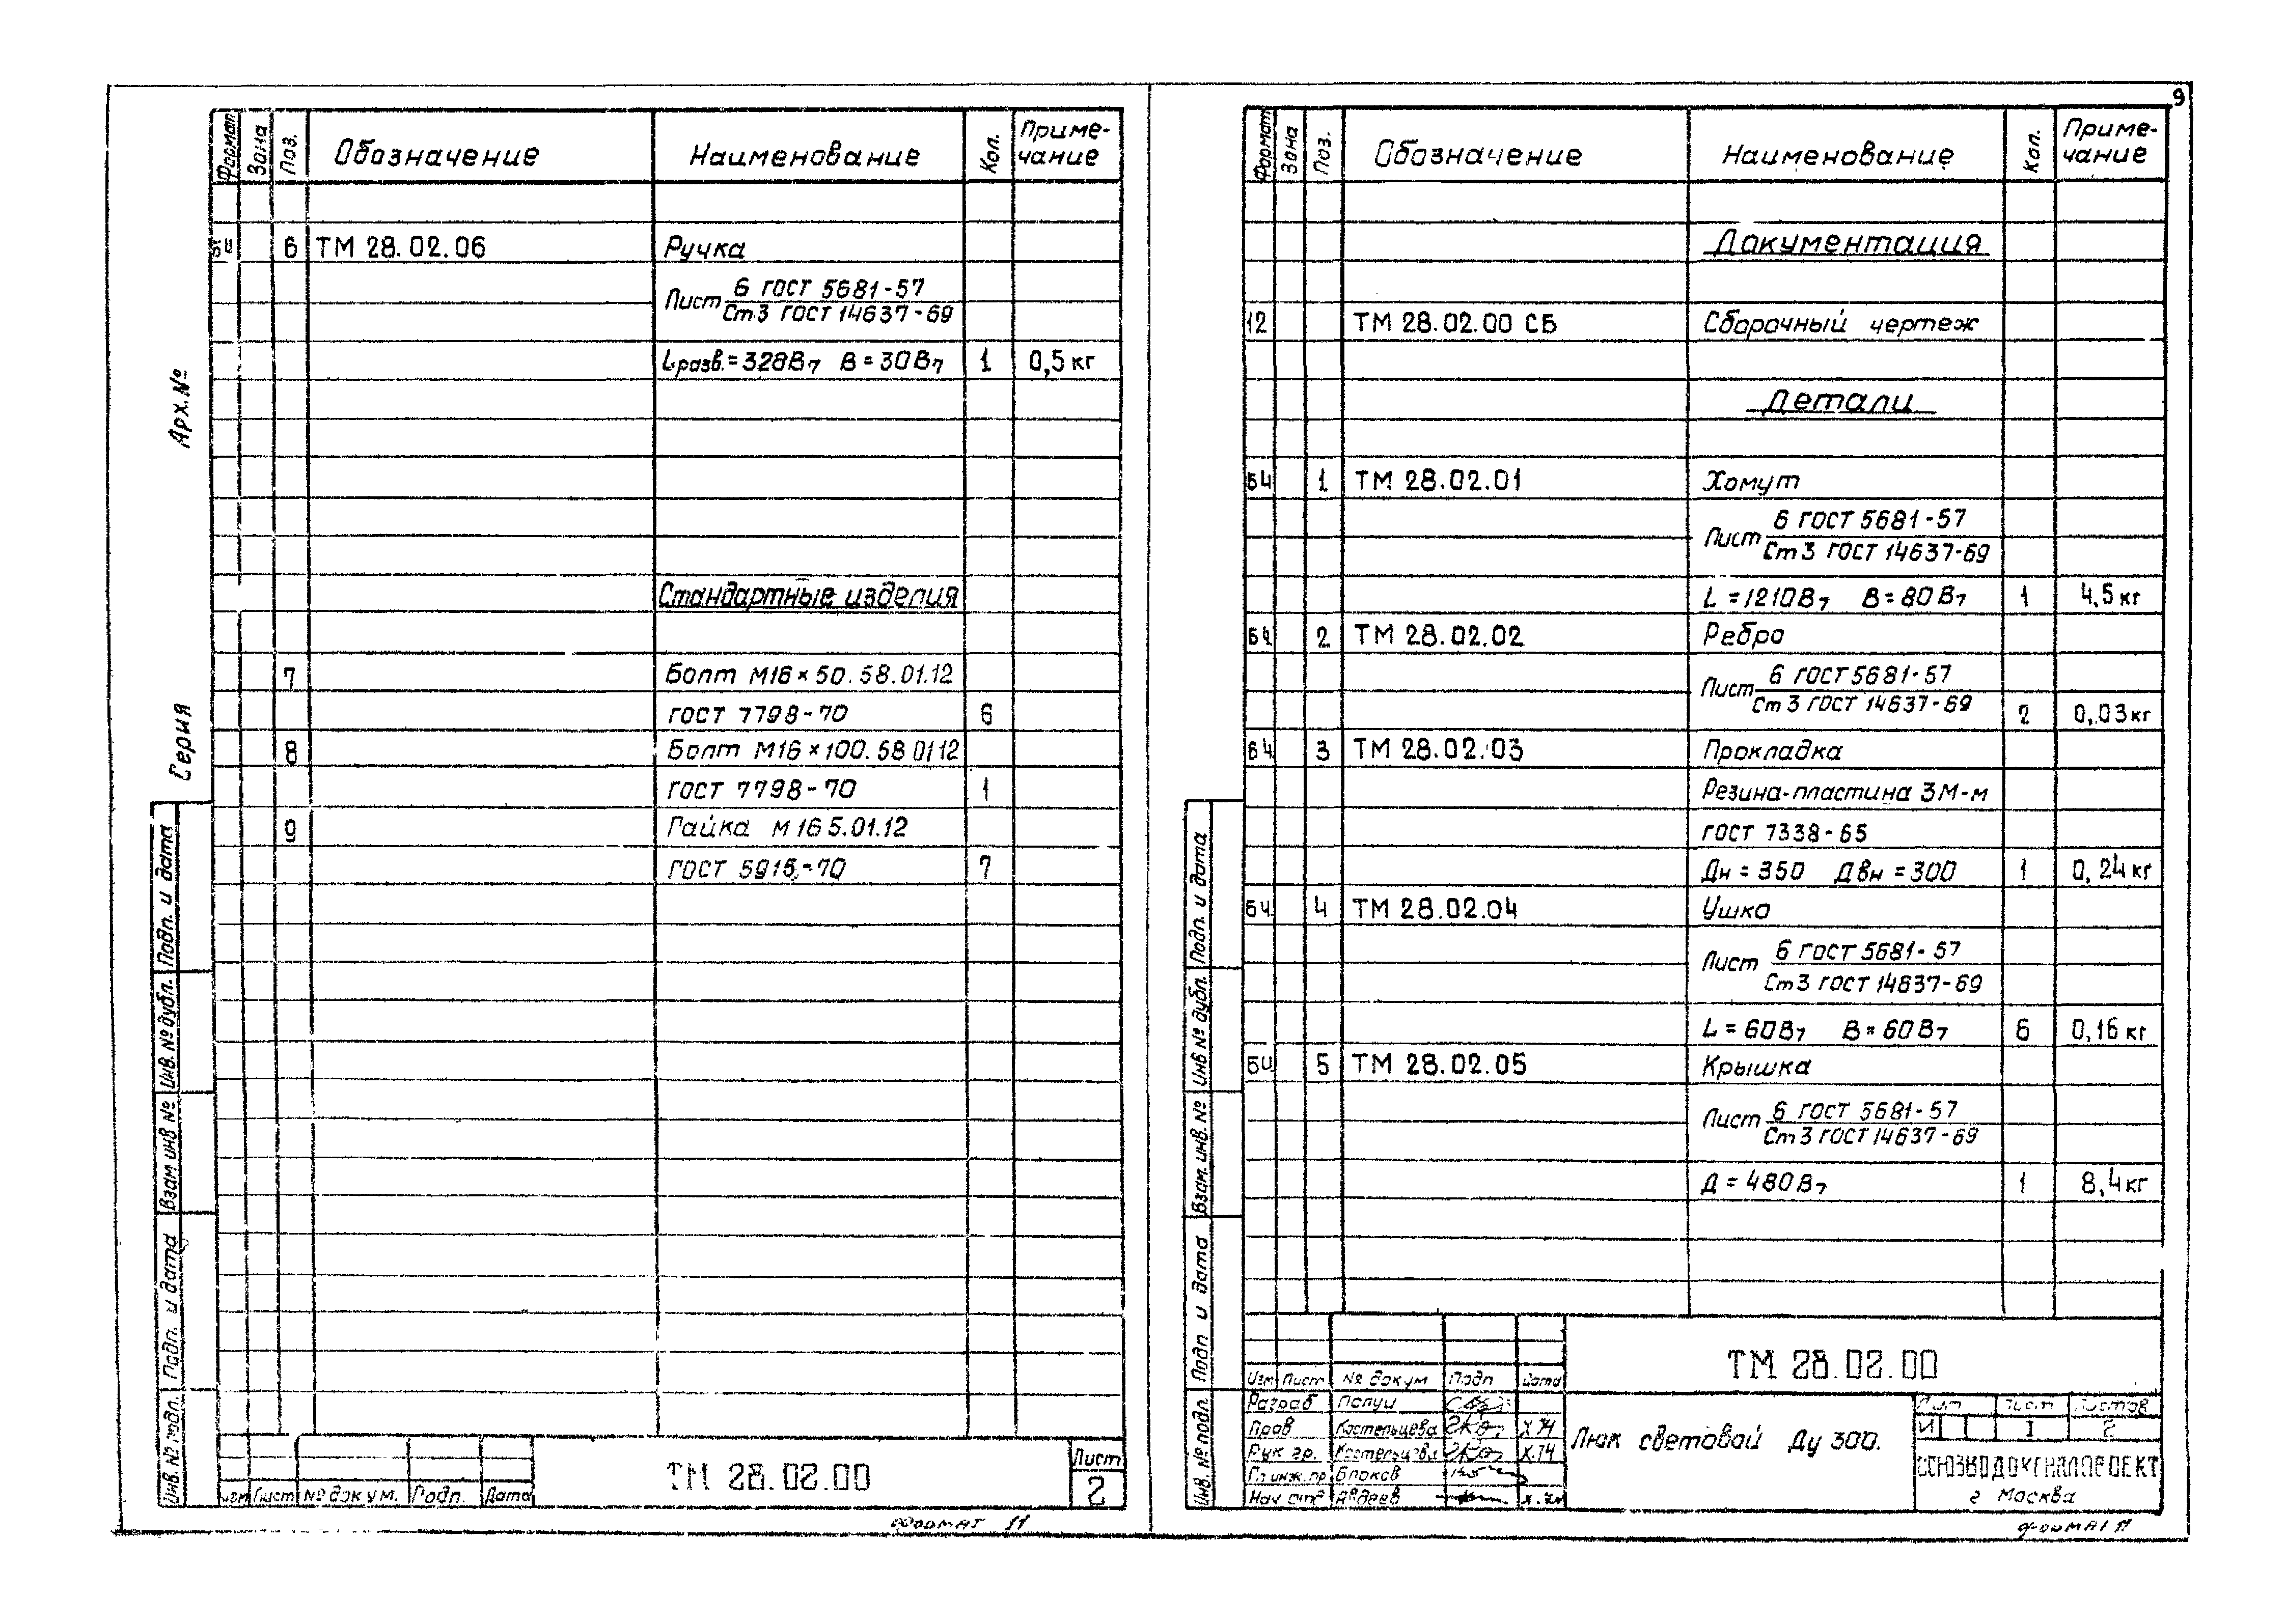 9
Формат Зона Поз. Обозначение Наименование Кол. Приме-
чание
БЧ 6 ТМ 28.02.06 Ручка
Лист 6 ГОСТ 5681-57
Ст.3 ГОСТ 14637-69
Lразв.=328В7 В=30В7 1 0,5кг
Стандартные изделия
7 Болт М16×50.58.01.12
ГОСТ 7798-70 6
8 Болт М16×100.58 0112
ГОСТ 7798-70 1
9 Гайка М16 5.01.12
ГОСТ 5915-70 7
Арх.№
Серия
Подп. и дата
Инв. № дубл.
Взам инв №
Подп. и дата
Инв. № подл.
Изм Лист № докум. Подп. Дата
ТМ 28.02.00
Лист
2
Формат 11
Формат Зона Поз. Обозначение Наименование Кол. Приме-
чание
Документация
12 ТМ 28.02.00 СБ Сборочный чертеж
Детали
Б4 1 ТМ 28.02.01 Хомут
Лист 6 ГОСТ 5681-57
Ст3 ГОСТ 14637-69
L=1210В7 В=80В7 1 4,5кг
Б4 2 ТМ 28.02.02 Ребро
Лист 6 ГОСТ 5681-57
Ст3 ГОСТ 14637-69 2 0,03кг
Б4 3 ТМ 28.02.03 Прокладка
Резина-пластина 3М-м
ГОСТ 7338-65
Дн=350 Двн=300 1 0,24кг
БЧ 4 ТМ 28.02.04 Ушко
Лист 6 ГОСТ 5681-57
Ст3 ГОСТ 14637-69
L=60В7 В=60В7 6 0,16кг
БЧ 5 ТМ 28.02.05 Крышка
Лист 6 ГОСТ 5681-57
Ст3 ГОСТ 14637-69
Д=480В7 1 8,4кг
Подп. и дата
Инв № дубл.
Взам. инв. №
Подп и дата
Инв. № подл.
ТМ 28.02.00
Изм Лист № докум Подп Дата
Разраб
Пров Костельцева X.74
Рук гр. Костельцева X.74
Гл инж. пр Блоков
Нач отд Авдеев
Люк световой Ду 300.
Лит Лист Листов
И 1 2
СОЮЗВОДОКАНАЛПРОЕКТ
г Москва
Формат 11